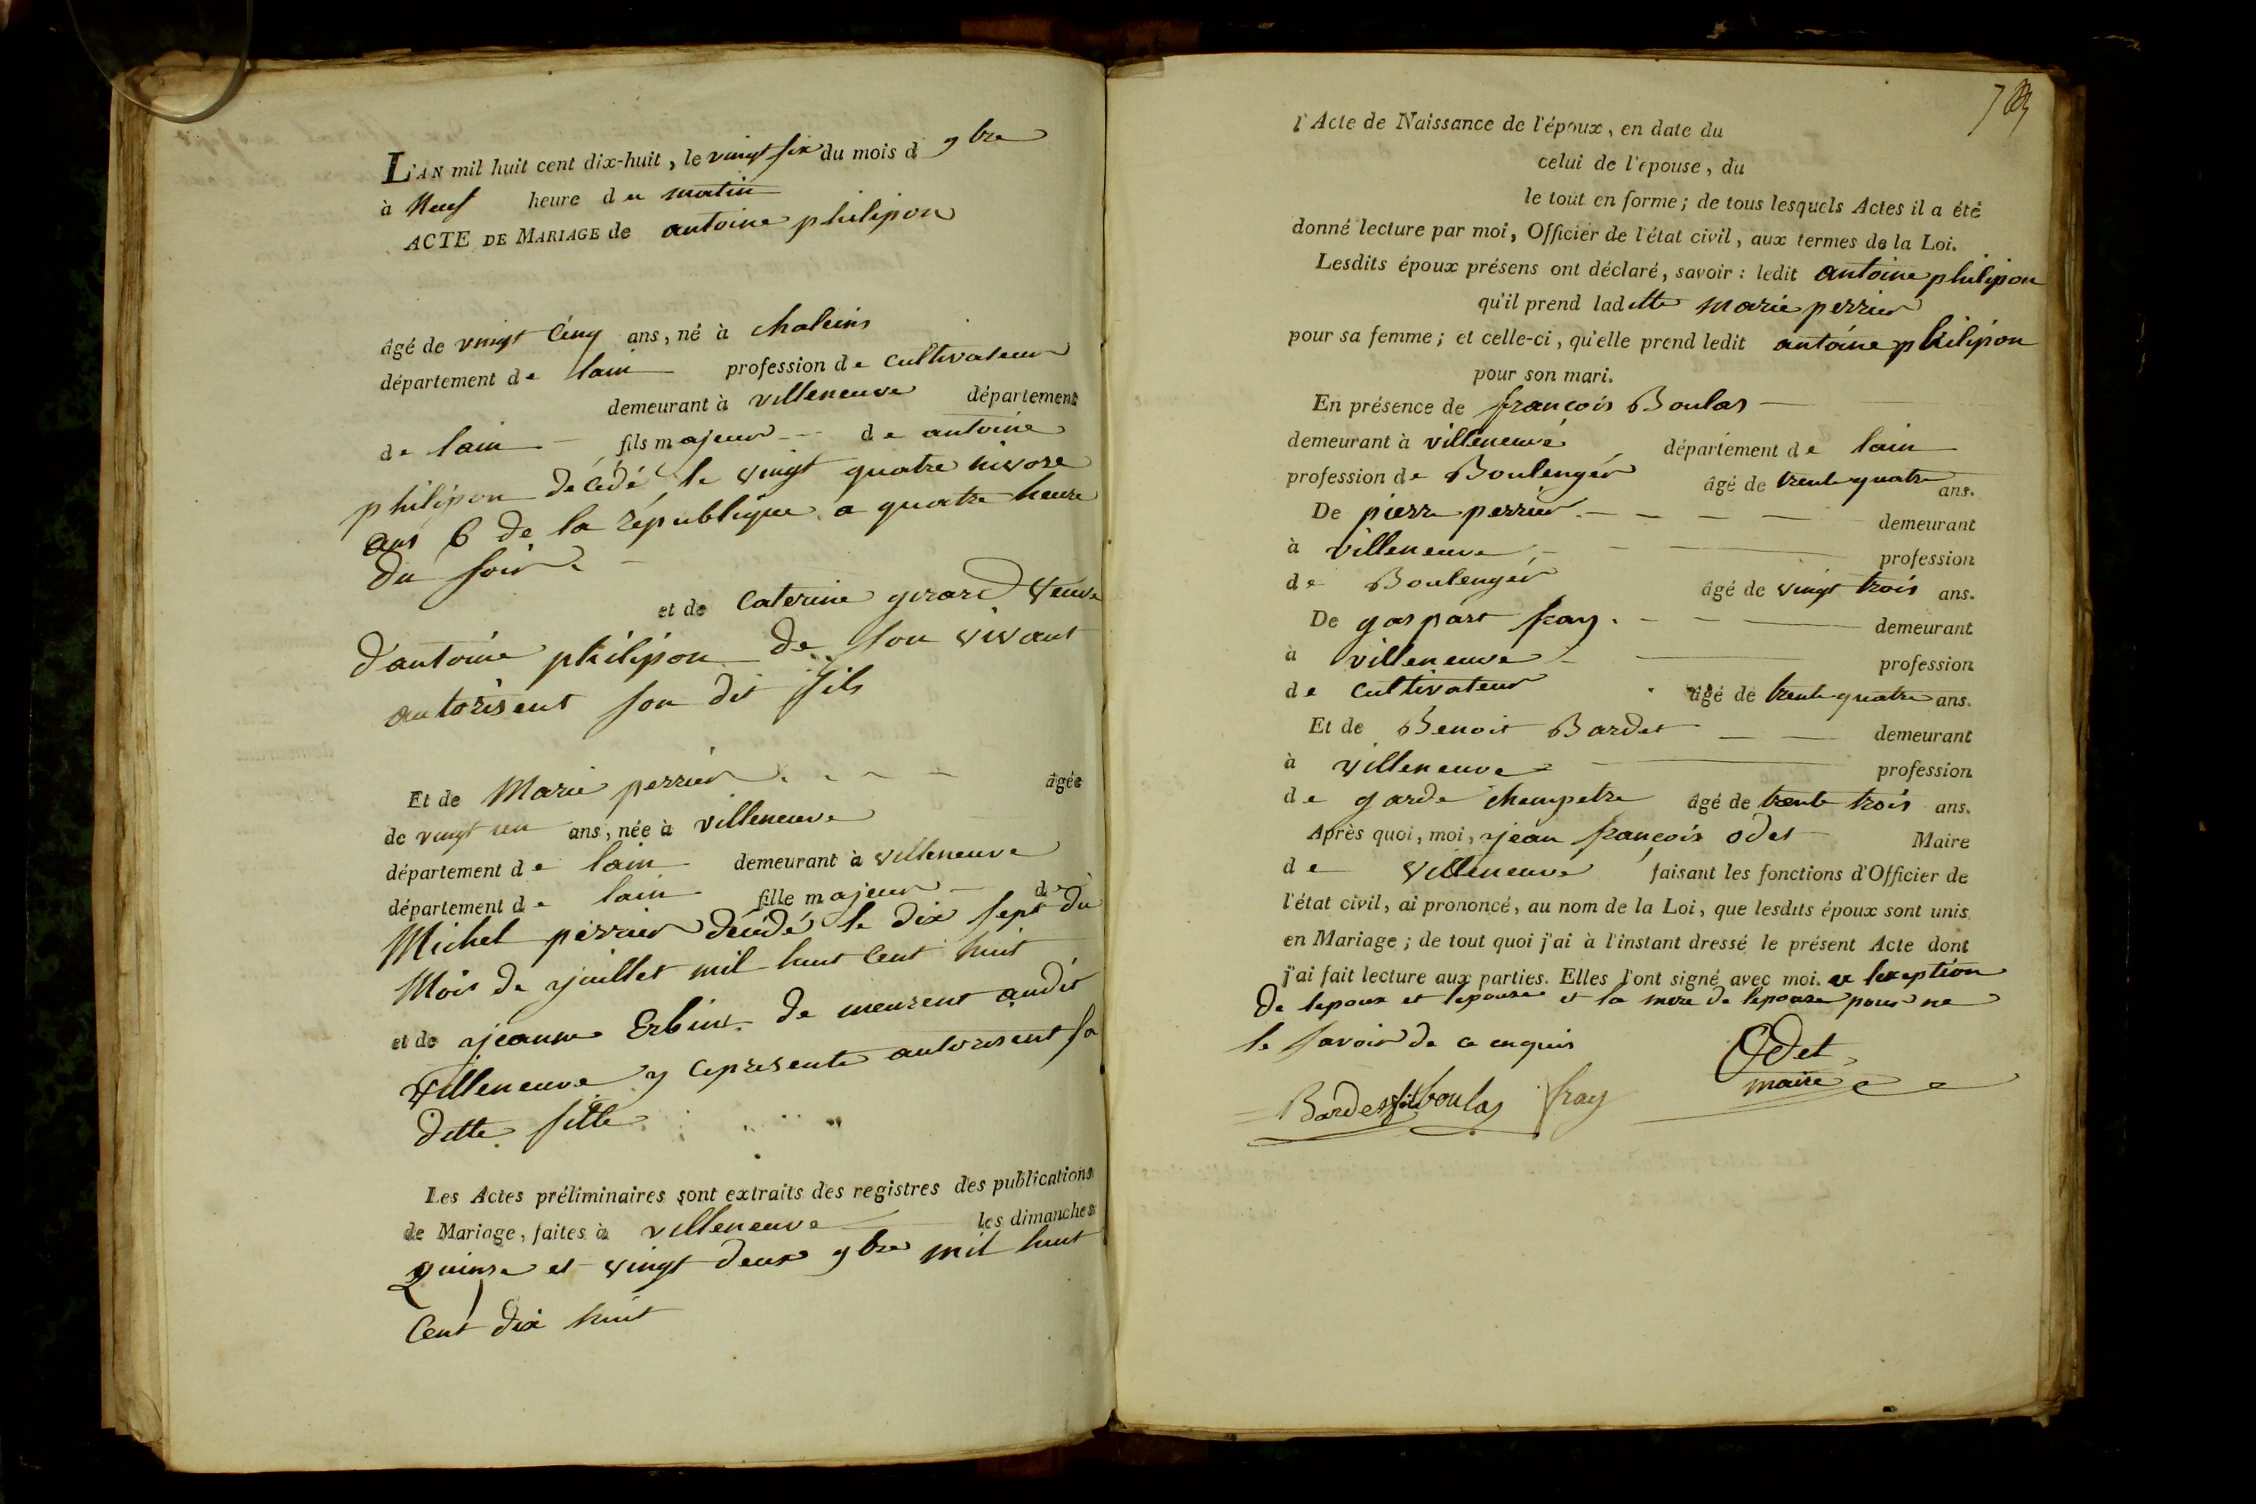 L'AN mil huit cent dix-huit, le vingt six du mois d 9bre
à Neuf heure du matin
ACTE DE MARIAGE de antoine philipon
âgé de vingt cinq ans, né à chaleins
département de lain profession de cultivateur
demeurant à villeneuve département
de lain fils majeur de antoine
philipon décédé le vingt quatre nivose
ans 6 de la république a quatre heure
du soir
et de Caterine girard veuve
d'antoine philipon de son vivant
autorisent son dit fils
Et de Marie perrier âgée
de vingt un ans, née à villeneuve
département de lain demeurant à villeneuve
département de lain fille majeur de
Michel perrier décédé le dix sept du
Mois de juillet mil huit cent huit
et de jeanne Erbin demeurent audit
villeneuve y cepresente autorisent sa
ditte fille
Les Actes préliminaires sont extraits des registres des publications
de Mariage, faites à villeneuve les dimanches
quinse et vingt deux 9bre mil huit
Cent dix huit
l'Acte de Naissance de l'époux, en date du
celui de l'epouse, du
le tout en forme; de tous lesquels Actes il a été
donné lecture par moi, Officier de l'état civil, aux termes de la Loi.
Lesdits époux présens ont déclaré, savoir: ledit antoine philipon
qu'il prend laditte marie perrier
pour sa femme; et celle-ci, qu'elle prend ledit antoine philipon
pour son mari.
En présence de françois Boulas
demeurant à villeneuve département de lain
profession de Boulengér âgé de trente quatre ans.
De pierre perrier demeurant
à villeneuve profession
de Boulengér âgé de vingt trois ans.
De gaspart fray demeurant
à villeneuve profession
de cultivateur âgé de trente quatre ans.
Et de Benoit Bardet demeurant
à villeneuve profession
de garde champetre âgé de trente trois ans.
Après quoi, moi, jean françois odet Maire
de villeneuve faisant les fonctions d'Officier de
l'état civil, ai prononcé, au nom de la Loi, que lesdits époux sont unis
en Mariage; de tout quoi j'ai à l'instant dressé le présent Acte dont
j'ai fait lecture aux parties. Elles l'ont signé avec moi. a lexeption
de lepoux et lepouse et la mere de lepouse pour ne
le savoir de ce enquis
Odet
maire
Bardet boulas fray